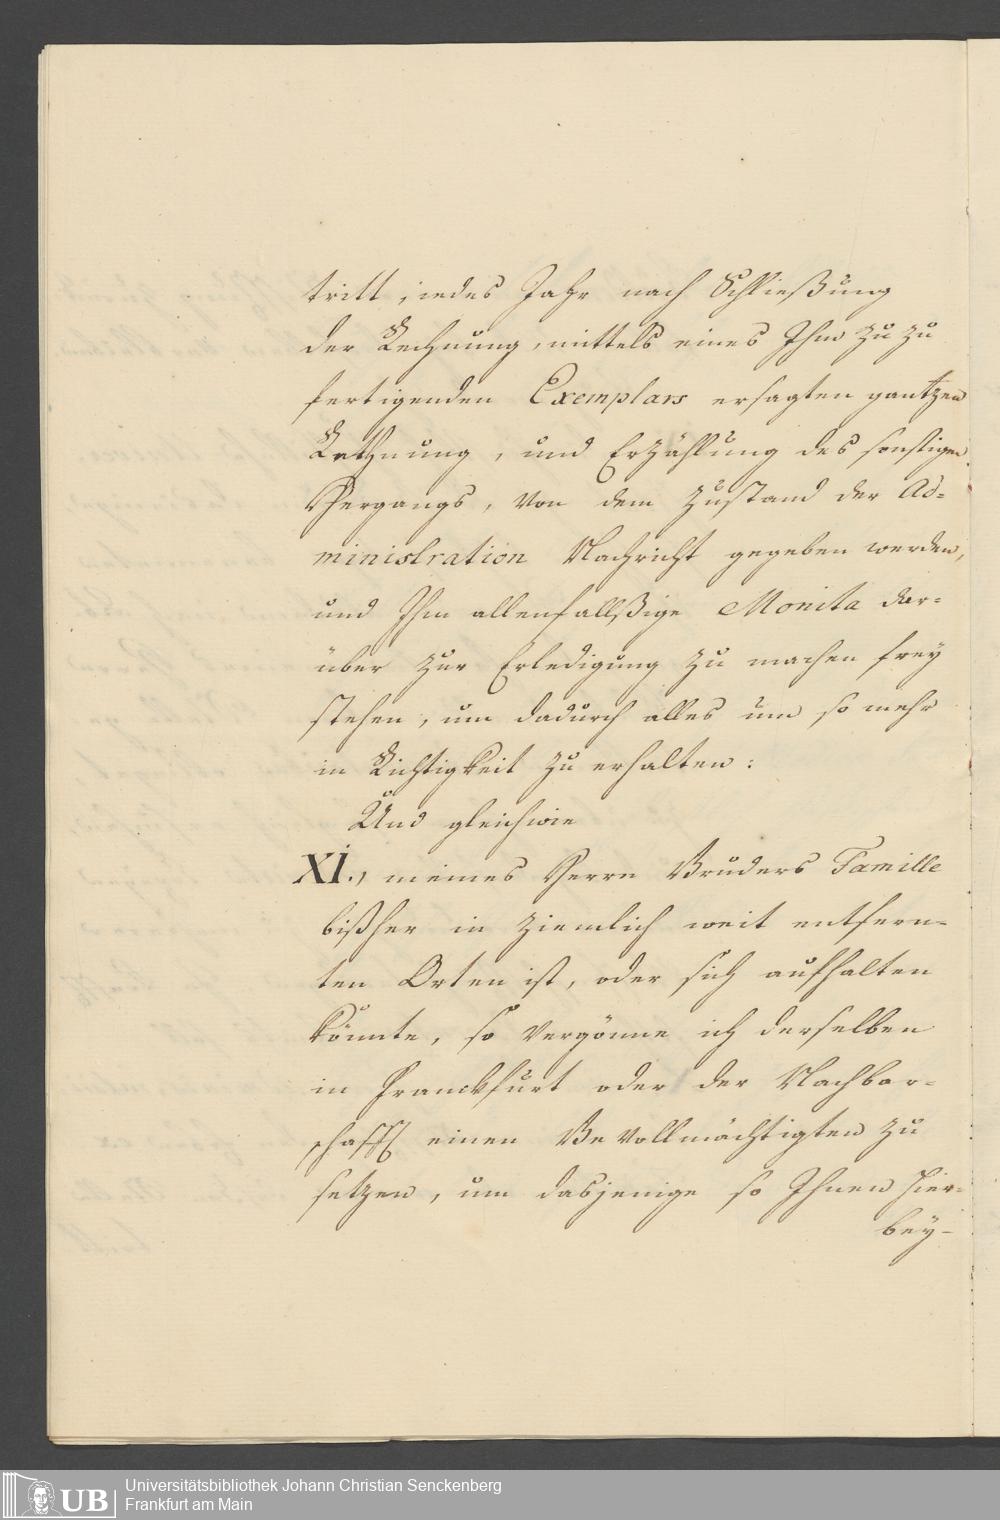 tritt, jedes Jahr nach Schließung
der Rechnung, mittels eines Ihm zu zu
fertigenden Exemplars ersagten gantzen
Rechnung, und Erzählung des sonstigen
Hergangs, von dem Zustand der Ad-
ministration Nachricht gegeben werden,
und Ihm allenfallßige Monita dar-
über zur Erledigung zu machen frey
stehen, um dadurch alles um so mehr
in Richtigkeit zu erhalten:
Und gleichwie
XI., meines Herrn Bruders Famille
bißher in ziemlich weit entfern-
ten Orten ist, oder sich aufhalten
könnte, so vergönne ich derselben
in Franckfurt oder der Nachbar-
schafft einen Bevollmächtigten zu
setzen, um dasjenige so Ihnen hier-
bey-
Universitätsbibliothek Johann Christian Senckenberg
Frankfurt am Main
UB